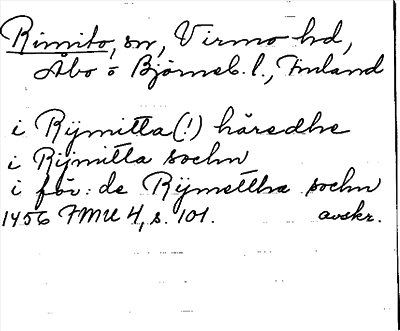 Rimito, sn, Virmo hd,
Åbo o Björneb. l., Finland
i Rijmitta (!) häredhe
i Rijmitta sochn
i för: de Rijmettha sochn
1456 FMU 4, s. 101. avskr.